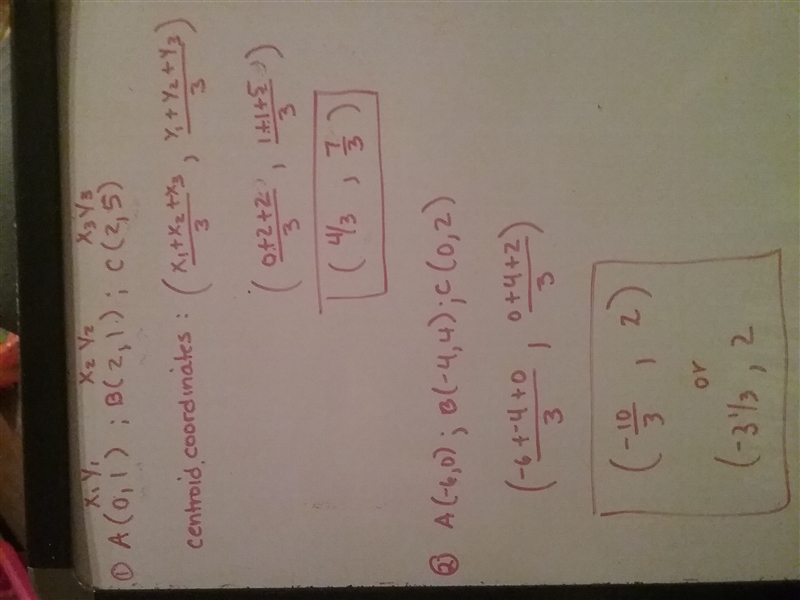 x₁ y₁ x₂ y₂ x₃ y₃
① A(0,1) ; B(2,1) ; C(2,5)
centroid coordinates : (x₁+x₂+x₃/3 , y₁+y₂+y₃/3)
(0+2+2/3 , 1+1+5/3)
(4/3 , 7/3)
② A(-6,0); B(-4,4); C(0,2)
(-6+-4+0/3 , 0+4+2/3)
(-10/3 , 2)
or
(-3 1/3 , 2